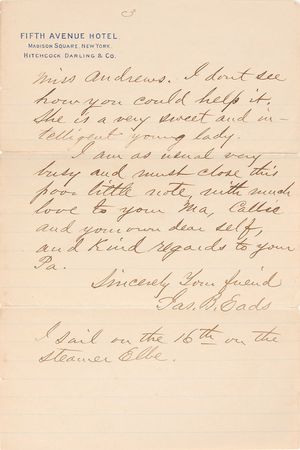 3
FIFTH AVENUE HOTEL
MADISON SQUARE, NEW YORK.
HITCHCOCK, DARLING & CO.
Miss Andrews. I dont see
how you could help it.
She is a very sweet and in-
telligent young lady.
I am as usual very
busy and must close this
poor little note with much
love to your Ma, Callie
and your own dear self,
and kind regards to your
Pa.
Sincerely Your friend
Jas. B. Eads
I sail on the 16th on the
steamer Elbe.